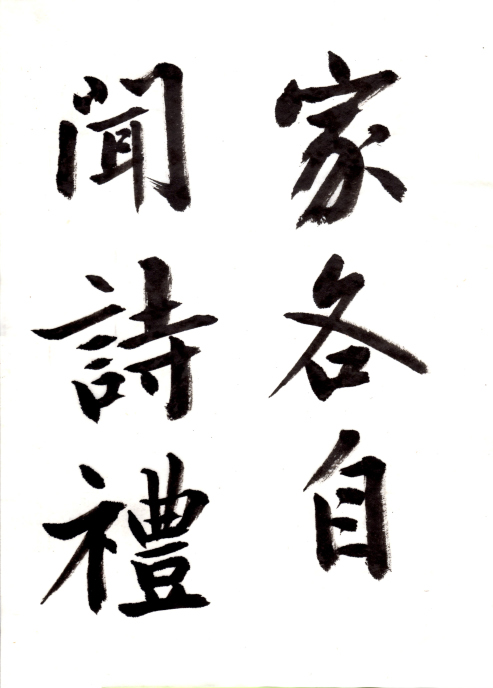 家各自
聞詩禮